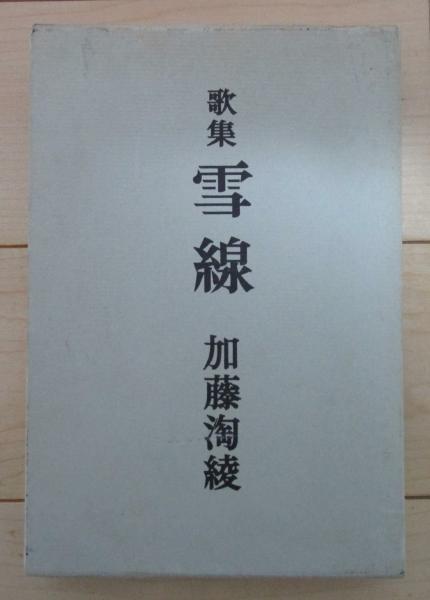 歌集 雪線 加藤淘綾